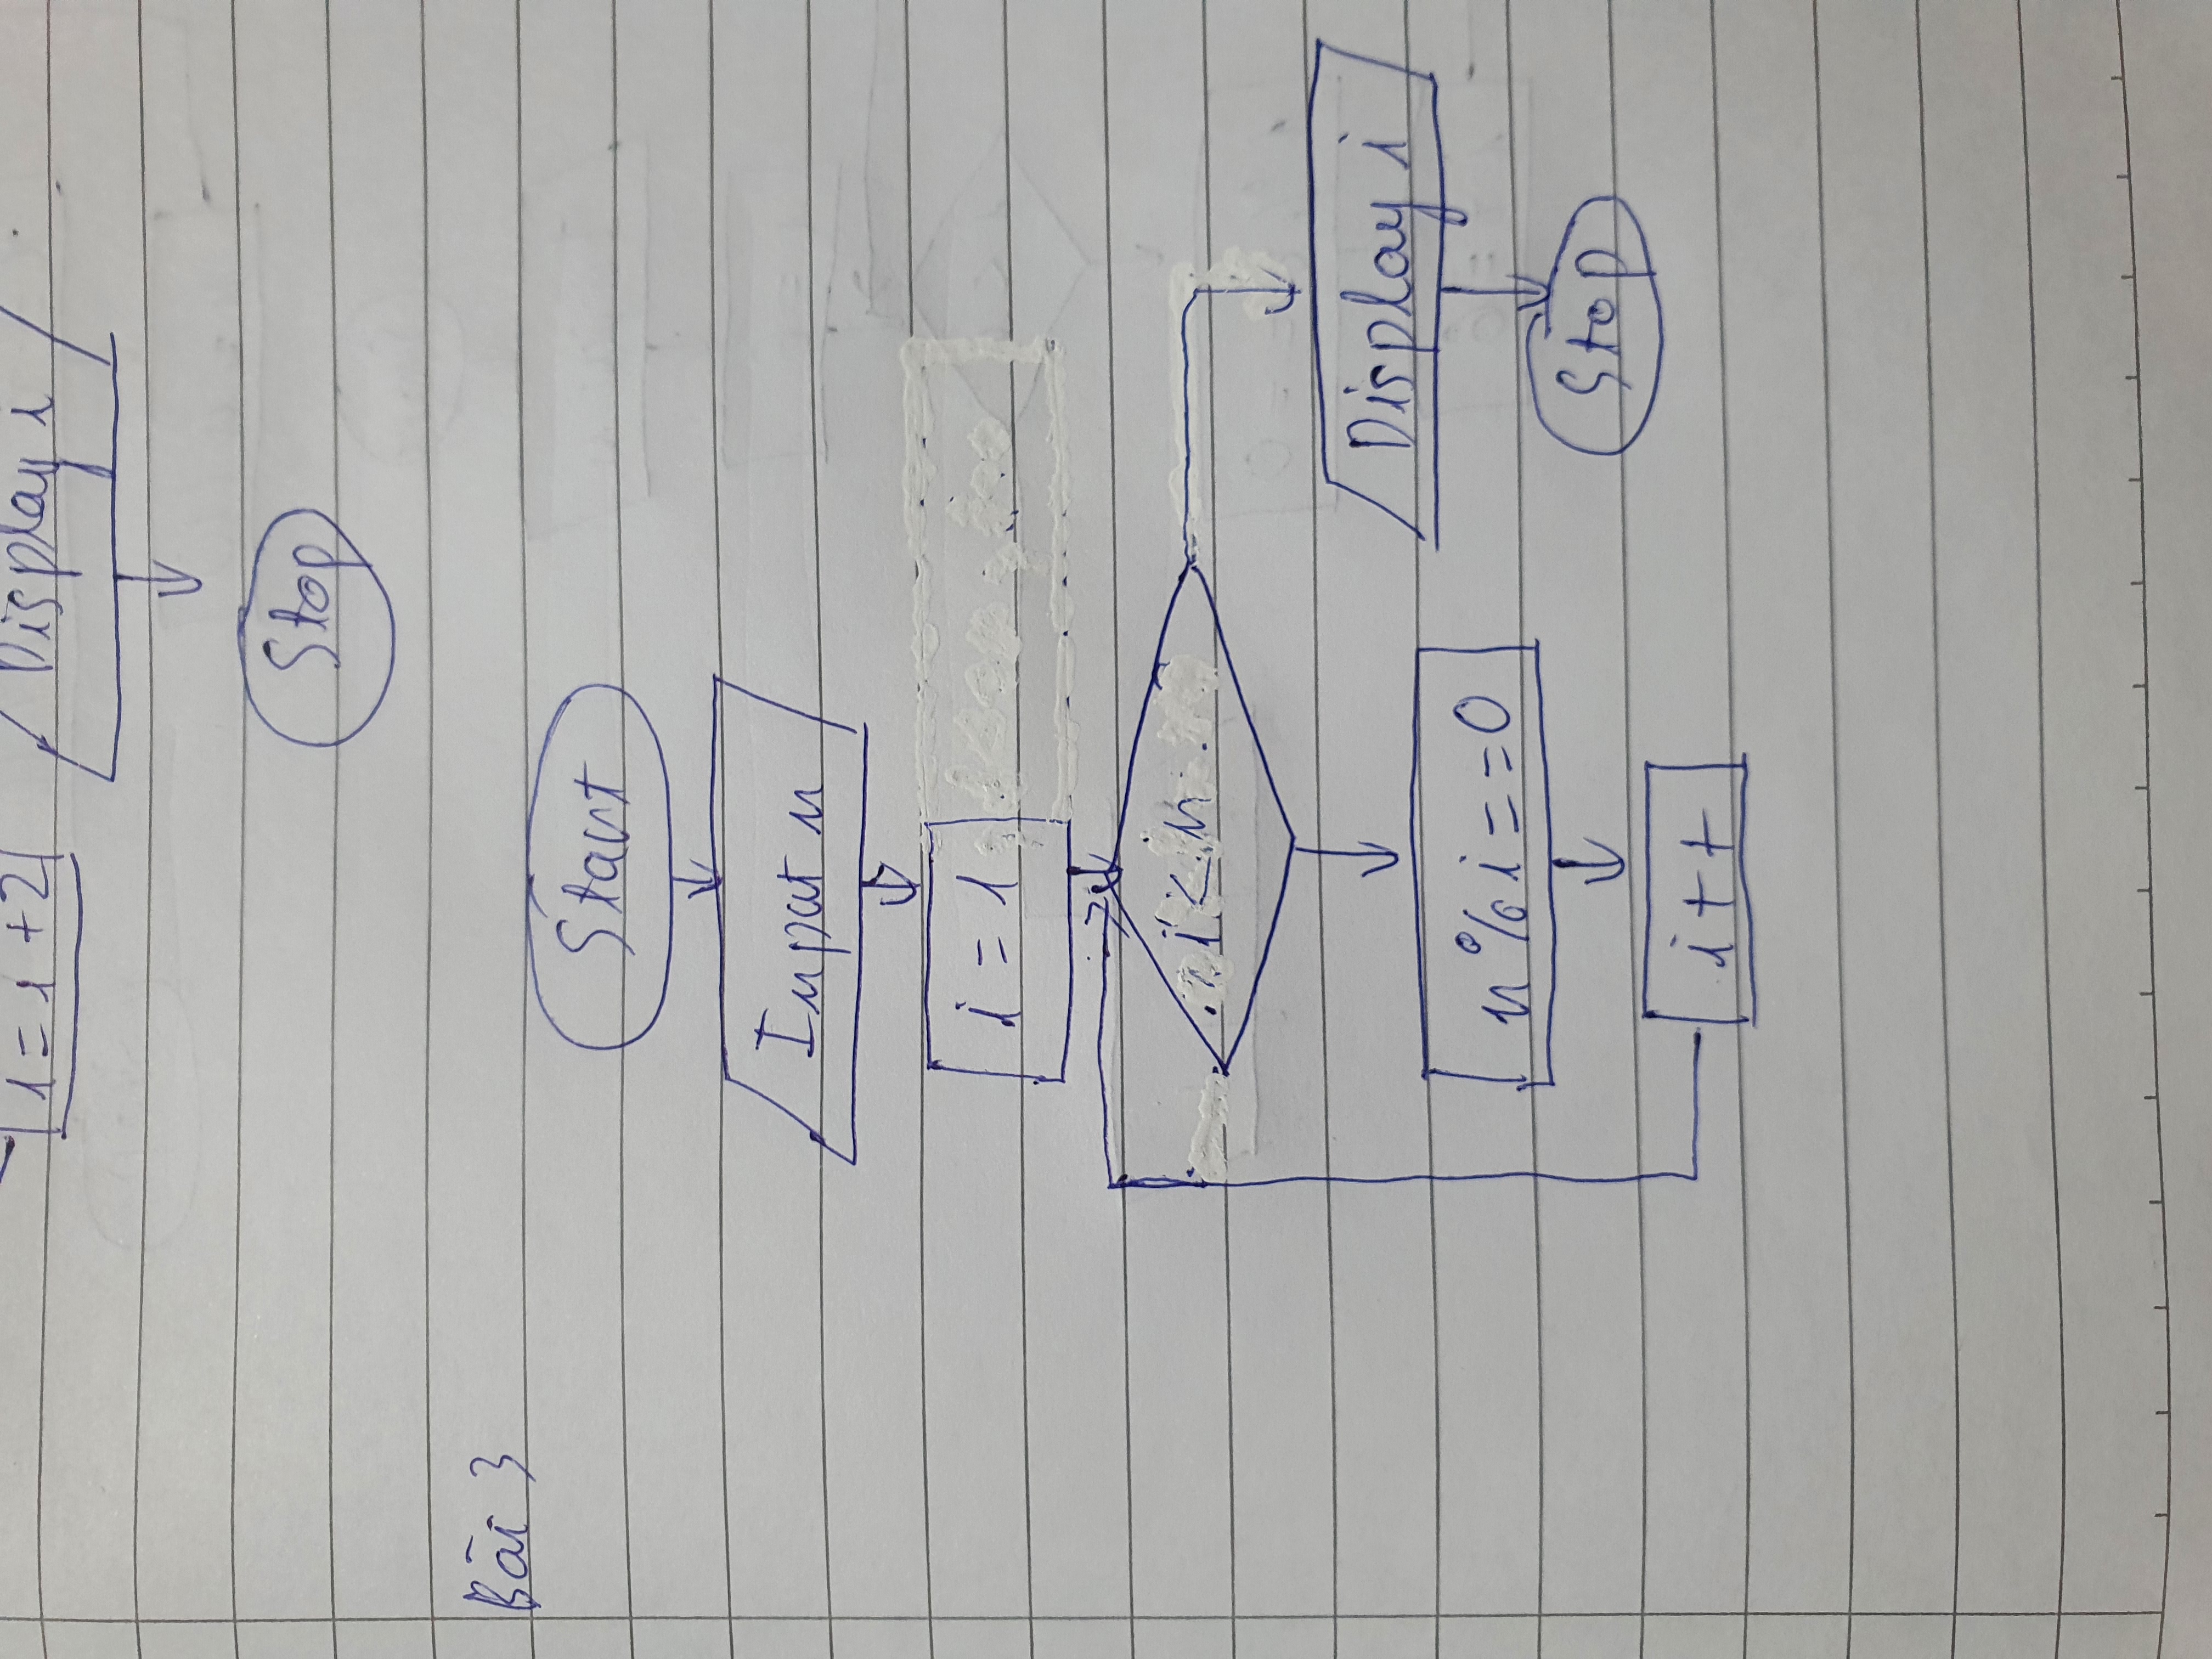 i = i + 2
Display i
Stop
Bài 3
Start
Input n
i = 1
i < n
n % i == 0
Display i
Stop
i++